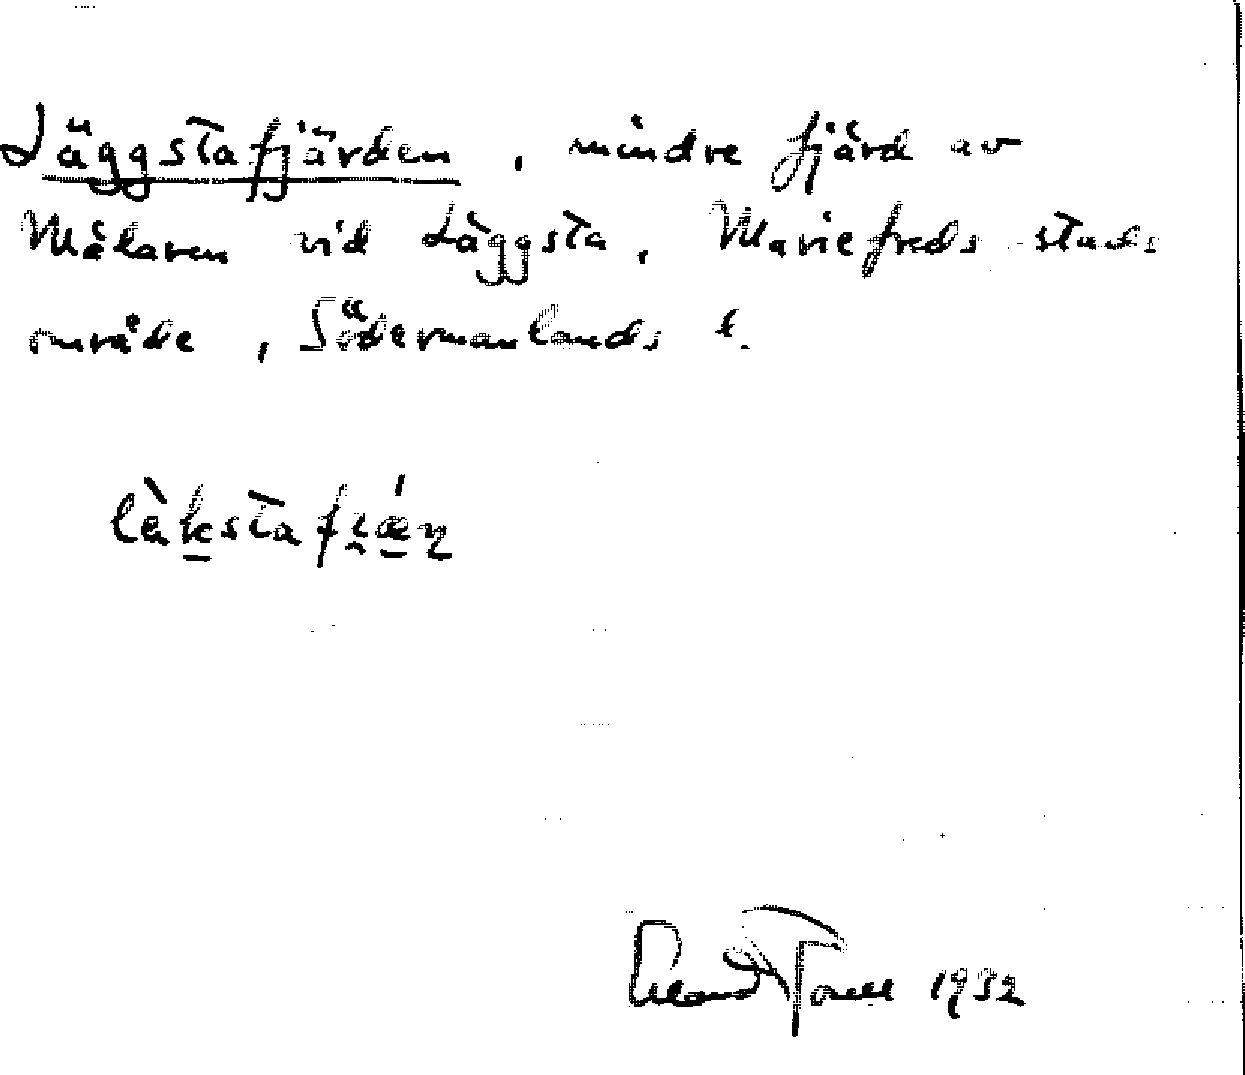 Läggstafjärden, mindre fjärd av
Mälaren vid Läggsta, Mariefreds stads
område, Södermanlands l.
1932